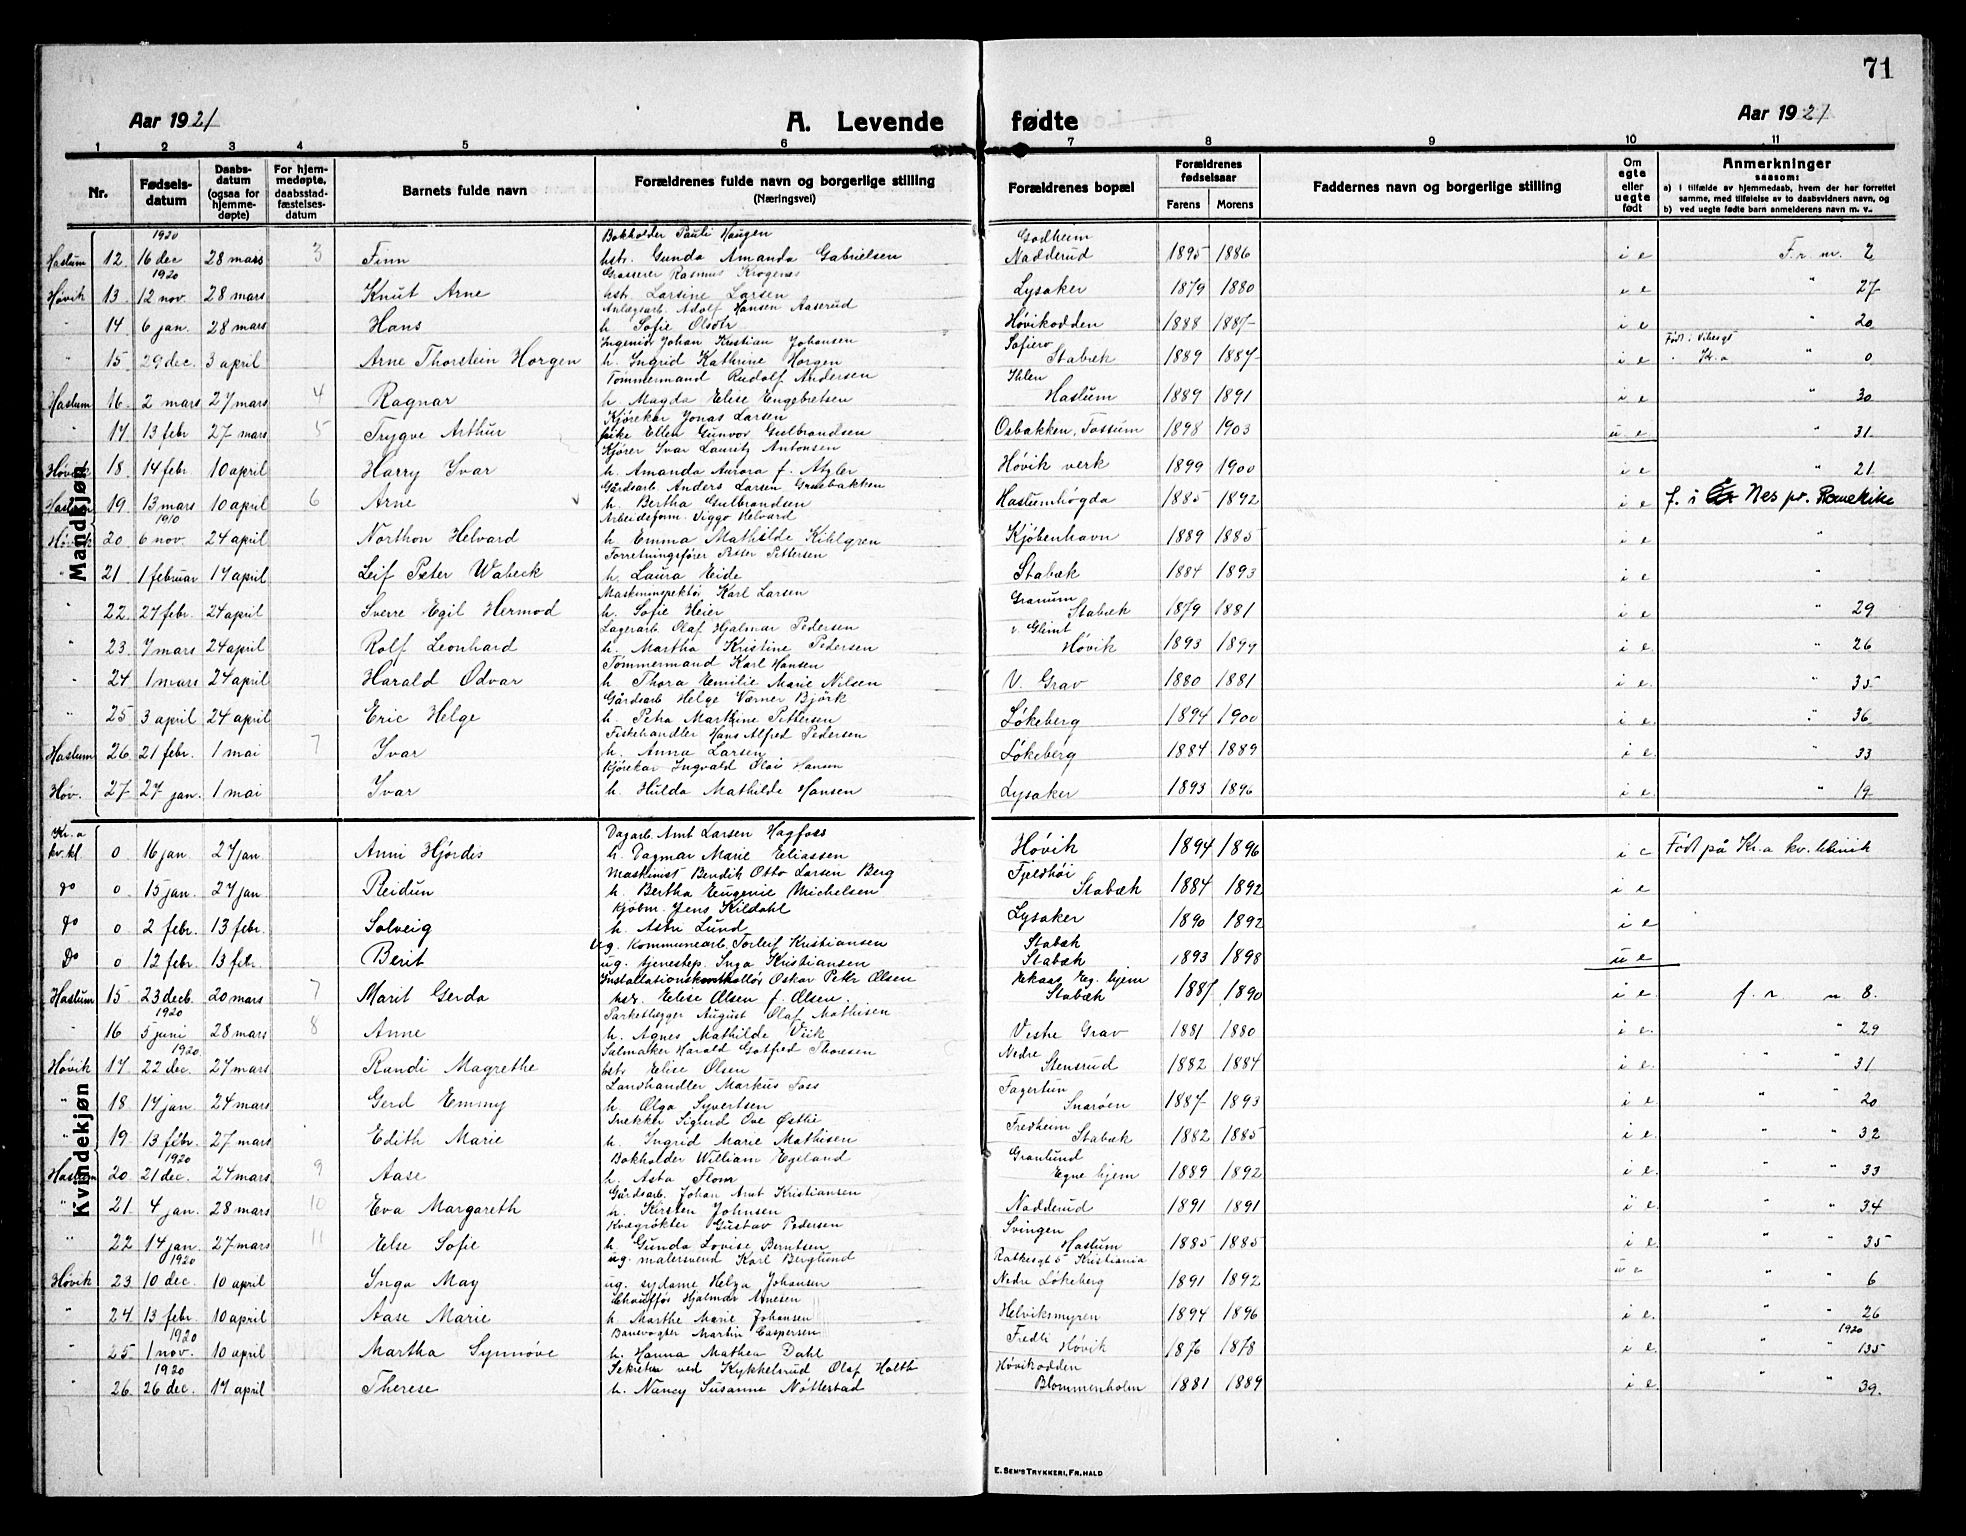 71
Aar 1921 A. Levende fødte Aar 1921
1 2 3 4 5 6 7 8 9 10 11
Nr. Fødsels-datum Daabs-datum (ogsaa for hjemme-døpte) For hjem-medøpte, daabsstad-fæstelses-datum Barnets fulde navn Forældrenes fulde navn og borgerlige stilling (Næringsvei) Forældrenes bopæl Forældrenes fødselsaar Farens Morens Faddernes navn og borgerlige stilling Om egte eller uegte født Anmerkninger saasom:
a) i tilfælde av hjemmedaab, hvem der har forrettet samme, med tilføielse av to daabsvidners navn, og
b) ved uegte fødte barn anmelderens navn m. v.
Mandkjøn
1920 Bokholder Pauli Haugen Godheim
Haslum 12 16 dec 28 mars 3 Finn hstr. Gunda Amanda Gabrielsen Nadderud 1895 1886 i e F. r. nr. 2
1920 Grosserer Rasmus Krogenes
Høvik 13 12 nov. 28 mars Knut Arne hstr. Larsine Larsen Lysaker 1879 1880 i e " 27
Anlægsarb. Adolf Hansen Aaserud
" 14 6 jan. 28 mars Hans h. Sofie Olsdtr Høvikodden 1888 1887 i e " 20
Ingeniør Johan Kristian Johansen Sofiero Født i Vibesgt
" 15 29 dec. 3 april Arne Thorstein Horgen h. Ingrid Kathrine Horgen Stabæk 1889 1887 i e Kr.a " 0
Tømmermand Rudolf Andersen Ihlen
Haslum 16 2 mars 27 mars 4 Ragnar h. Magda Elise Engebretsen Haslum 1889 1891 i e " 30
Kjørekar Jonas Larsen
" 17 13 febr 27 mars 5 Trygve Arthur pike Ellen Gunvor Gulbrandsen Osbakken, Fossum 1898 1903 u e " 31
Kjører Ivar Lauritz Antonsen
Høvik 18 14 febr 10 april Harry Ivar h. Amanda Aurora f. Høvik verk 1899 1900 i e " 21
Gårdsarb. Anders Larsen Grinebakken
Haslum 19 13 mars 10 april 6 Arne h. Bertha Gulbrandsen Haslumhøgda 1885 1892 i e f. i Nes pr. Romerike
1910 Arbeidsform. Viggo Helvard
Høvik 20 6 nov. 24 april Northon Helvard h. Emma Mathilde Kihlgren Kjøbenhavn 1889 1885 i e "
Forretningsfører Peter Pettersen
" 21 1 februar 17 april Leif Peter Wabeck h. Laura Eide Stabæk 1884 1893 i e "
Maskininspektør Karl Larsen Granum
" 22 27 febr. 24 april Sverre Egil Hermod h. Sofie Heier Stabæk 1879 1881 i e " 29
Lagerarb. Olaf Hjalmar Pedersen v. Glimt
" 23. 7 mars 24 april Rolf Leonhard h. Martha Kristine Pedersen Høvik 1893 1899 i e " 26
Tømmermand Karl Hansen
" 24 1 mars 24 april Harald Odvar h. Thora Emilie Marie Nilsen V. Grav 1880 1881 i e. " 35
Gårdsarb Helge Værner Björk
" 25 3 april 24 april Eric Helge h. Petra Martine Pettersen Løkeberg 1894 1900 i e " 36
Fiskehandler Hans Alfred Pedersen
Haslum 26 21 febr. 1 mai 7 Ivar h. Anna Larsen Løkeberg 1884 1889 i e " 33
Kjørekar Ingvald Hansen
Høv. 27 27 jan. 1 mai Ivar h. Hulda Mathilde Hansen Lysaker 1893 1896 i e. " 19
Kvindekjøn
Kr.a Dagarb. Arnt Larsen Hagfoss
kv. kl. 0 16 jan 27 jan Anni Hjørdis h. Dagmar Marie Eliassen Høvik 1894 1896 i e Født på Kr.a kv. klinik
Maskinist Bendik Otto Larsen Berg Fjeldhøi
do 0 15 jan. 27 jan Reidun h. Bertha Eugenie Michelsen Stabæk 1884 1892 i e
Kjøbm. Jens Kildahl
do 0 2 febr. 13 febr. Solveig h. Astri Lund Lysaker 1890 1892 i e
ug. kommunearb. Torleif Kristiansen Stabæk
Do 0 12 febr. 13 febr. Berit ug. tjenestep. Inga Kristiansen Stabæk 1893 1898 u e
Installationskontrollør Oskar Petr Olsen Eg. hjem
Haslum 15 23 decb. 20 mars 7 Marit Gerda hst. Elise Olsen f. Olsen. Stabæk 1887 1890 i e. f. r n 8.
1920 Parketlægger August Olaf Mathisen
" 16 5 juni 28 mars 8 Anne h. Agnes Mathilde Viik Vestre Grav 1881 1880 i e. " 29
1920. Salmaker Harald Gotfred Thoresen Nedre
Høvik 17 22 dec. 27 mars Randi Magrethe hstr. Elise Olsen Stensrud 1882 1884 i e. " " 31
Landhandler Markus Foss Fagertun
" 18 17 jan. 24 mars Gerd Emmy h. Olga Syvertsen Snarøen 1887 1893 i e " " 20
Snekker Sigurd Ove Østlie Fredheim
" 19 13 febr. 27 mars Edith Marie h. Ingrid Marie Mathisen Stabæk 1882 1885 i e. " " 32
1920 Bokholder William Egeland Granlund
Haslum 20 21 dec. 24 mars 9 Aase h. Asta Flom Egne hjem 1889 1892 i e. " " 33
Gårdsarb. Johan Arnt Kristiansen
" 21. 4 jan. 28 mars 10 Eva Margareth h. Kirsten Johnsen Nadderud 1891 1891 i e. " " 34
Kvægrøkter Gustav Pedersen Svingen
" 22 14 jan. 27 mars 11 Else Sofie h. Gunda Lovise Berntsen Haslum 1885 1885 i e. " " 35
1920 ug. malersvend Karl Berglund Ratkesgt 5 Kristiania
Høvik 23. 10 dec. 10 april Inga May ug. sydame Helga Johansen Nedre Løkeberg 1891 1892 u e " " 6
Chauffør Hjalmar Arnesen
" 24 13 febr. 10 april Aase Marie h. Marthe Marie Johansen Helviksmyren 1894 1896 i e. " " 26
1920 Banevogter Martin Caspersen Fredli 1920
" 25 1 nov. 10 april Martha Synnøve h. Hanna Mathea Dahl Høvik 1876 1878 i e. " " 135
1920 Sekretær ved Kykkelsrud Olaf Holth Høvikodden
" 26. 26 dec. 17 april Therese h. Nancy Susanne Nøtterstad Blommenholm 1881 1889 i e. " " 39.
E. SEM'S TRYKKERI, FR. HALD